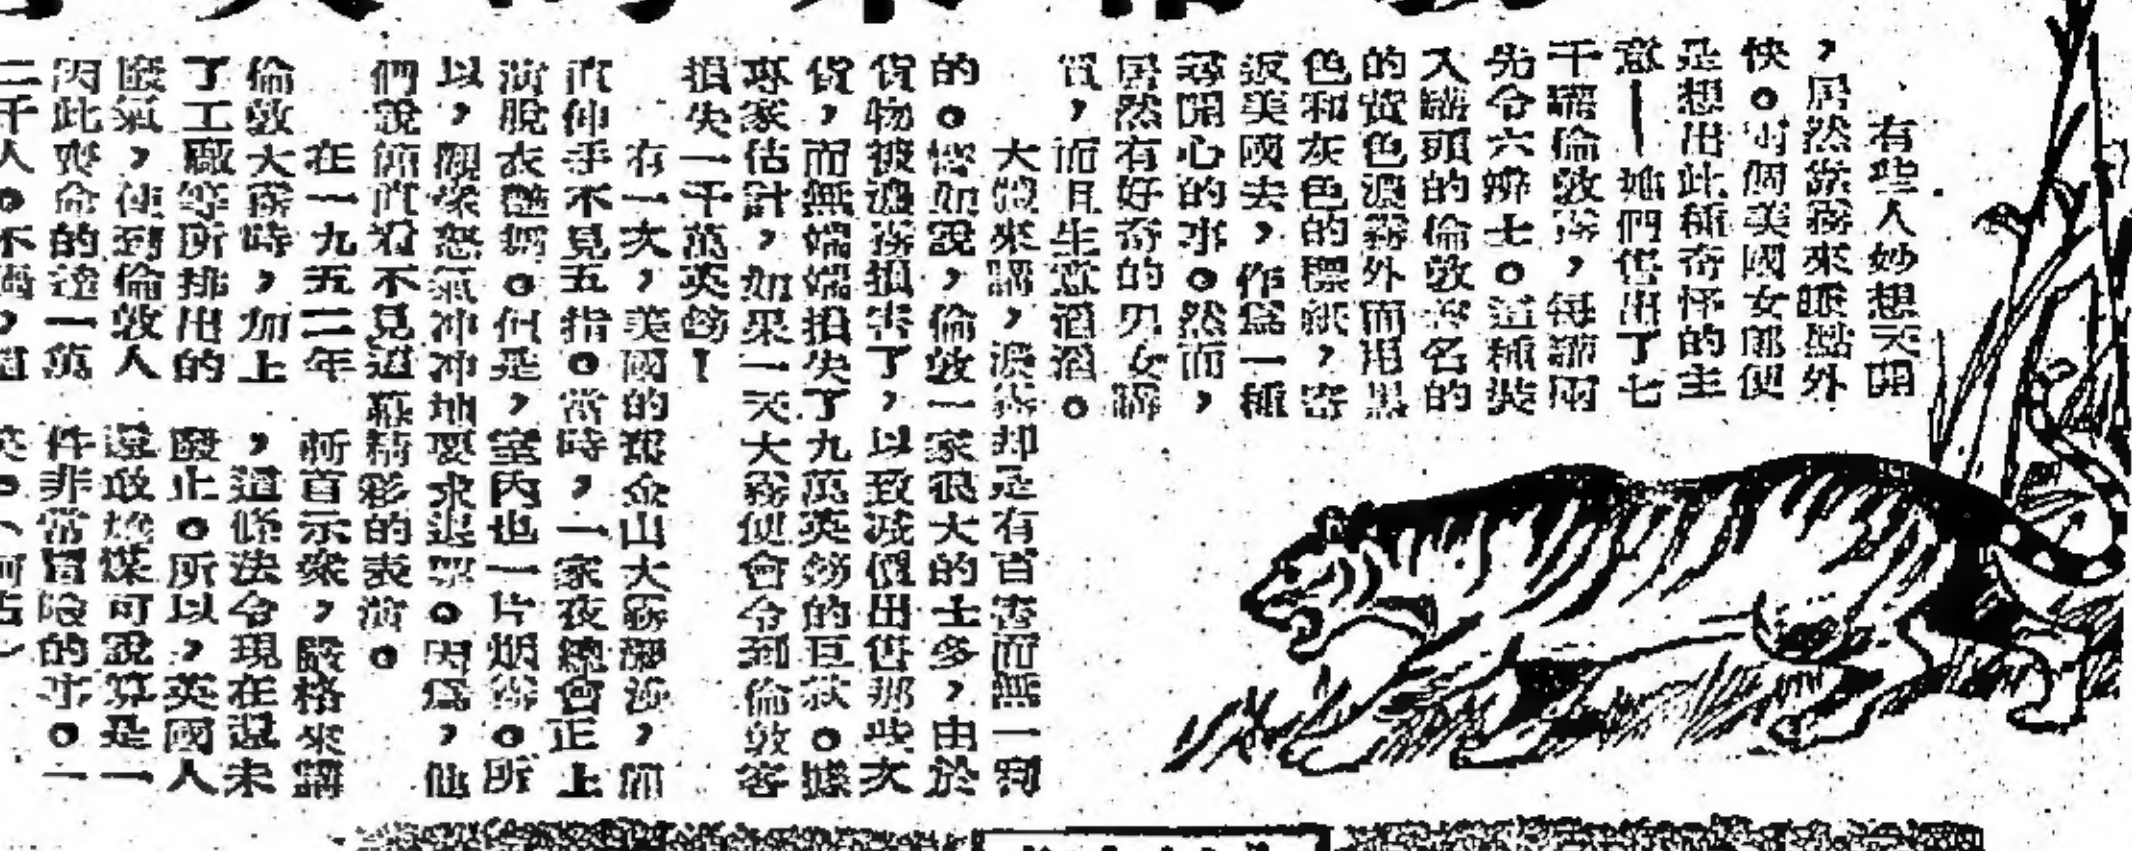 有些人妙想天開
，居然靠霧來賺點外
快。兩個美國女郎便
是想出此種奇怪的主
意——她們售出了七
千罐倫敦霧，每罐兩
先令六辨士。這種裝
入罐頭的倫敦著名的
的黃色濃霧外面用黑
色和灰色的標紙，寄
返美國去，作爲一種
尋開心的事。然而，
居然有好奇的男女購
買，而且生意滔滔。
大體來講，濃霧却是有百害而無一利
的。譬如說，倫敦一家很大的士多，由於
貨物被濃霧損害了，以致減價出售那些次
貨，而無端端損失了九萬英鎊的巨款。據
專家估計，如果一天大霧便會令到倫敦客
損失一千萬英鎊！
有一次，美國的舊金山大霧瀰漫，簡
直伸手不見五指。當時，一家夜總會正上
演脫衣艷舞。但是，室內也一片烟霧。所
以，觀衆怒氣冲冲地要求退票。因爲，他
們說簡直看不見這幕精彩的表演。
在一九五二年
倫敦大霧時，加上
了工廠等所排出的
廢氣，使到倫敦人
因此喪命的達一萬
二千人。不過，
斬首示衆，嚴格來講
，這條法令現在還未
廢止。所以，英國人
還敢燒煤可說算是一
件非常冒險的事。一